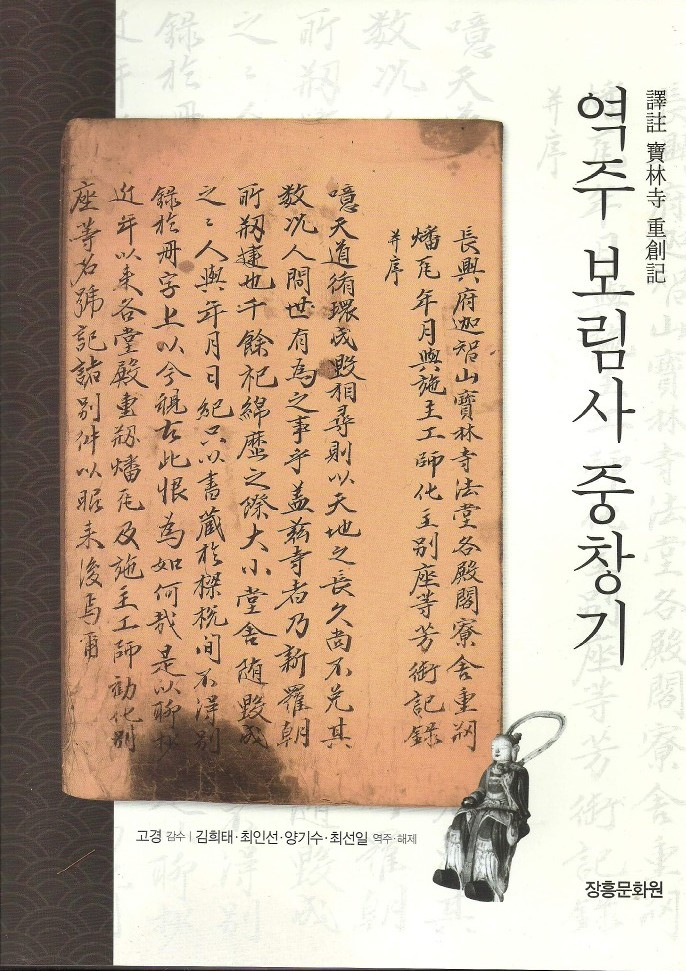 譯註 寶林寺 重創記
역주 보림사 중창기
長興府迦智山寶林寺法堂各殿閣寮舍重刱
燔瓦年月與施主工師化主别座等芳銜記錄
并序
噫天道循環成毀相尋則以天地之長久尚不免其
數况人間世有爲之事乎盖茲寺者乃新羅朝
所刱建也千餘祀綿歷之際大小堂舍随毀成
之〻人與年月日紀只以書蔵於樑梲间不得别
錄於冊字上以今視古此恨為如何哉是以聊
近年以来各堂殿重刱燔瓦及施主工師勸化别
座等名號記諸别件以眎来後焉爾
고경 감수 | 김희태·최인선·양기수·최선일 역주·해제
장흥문화원